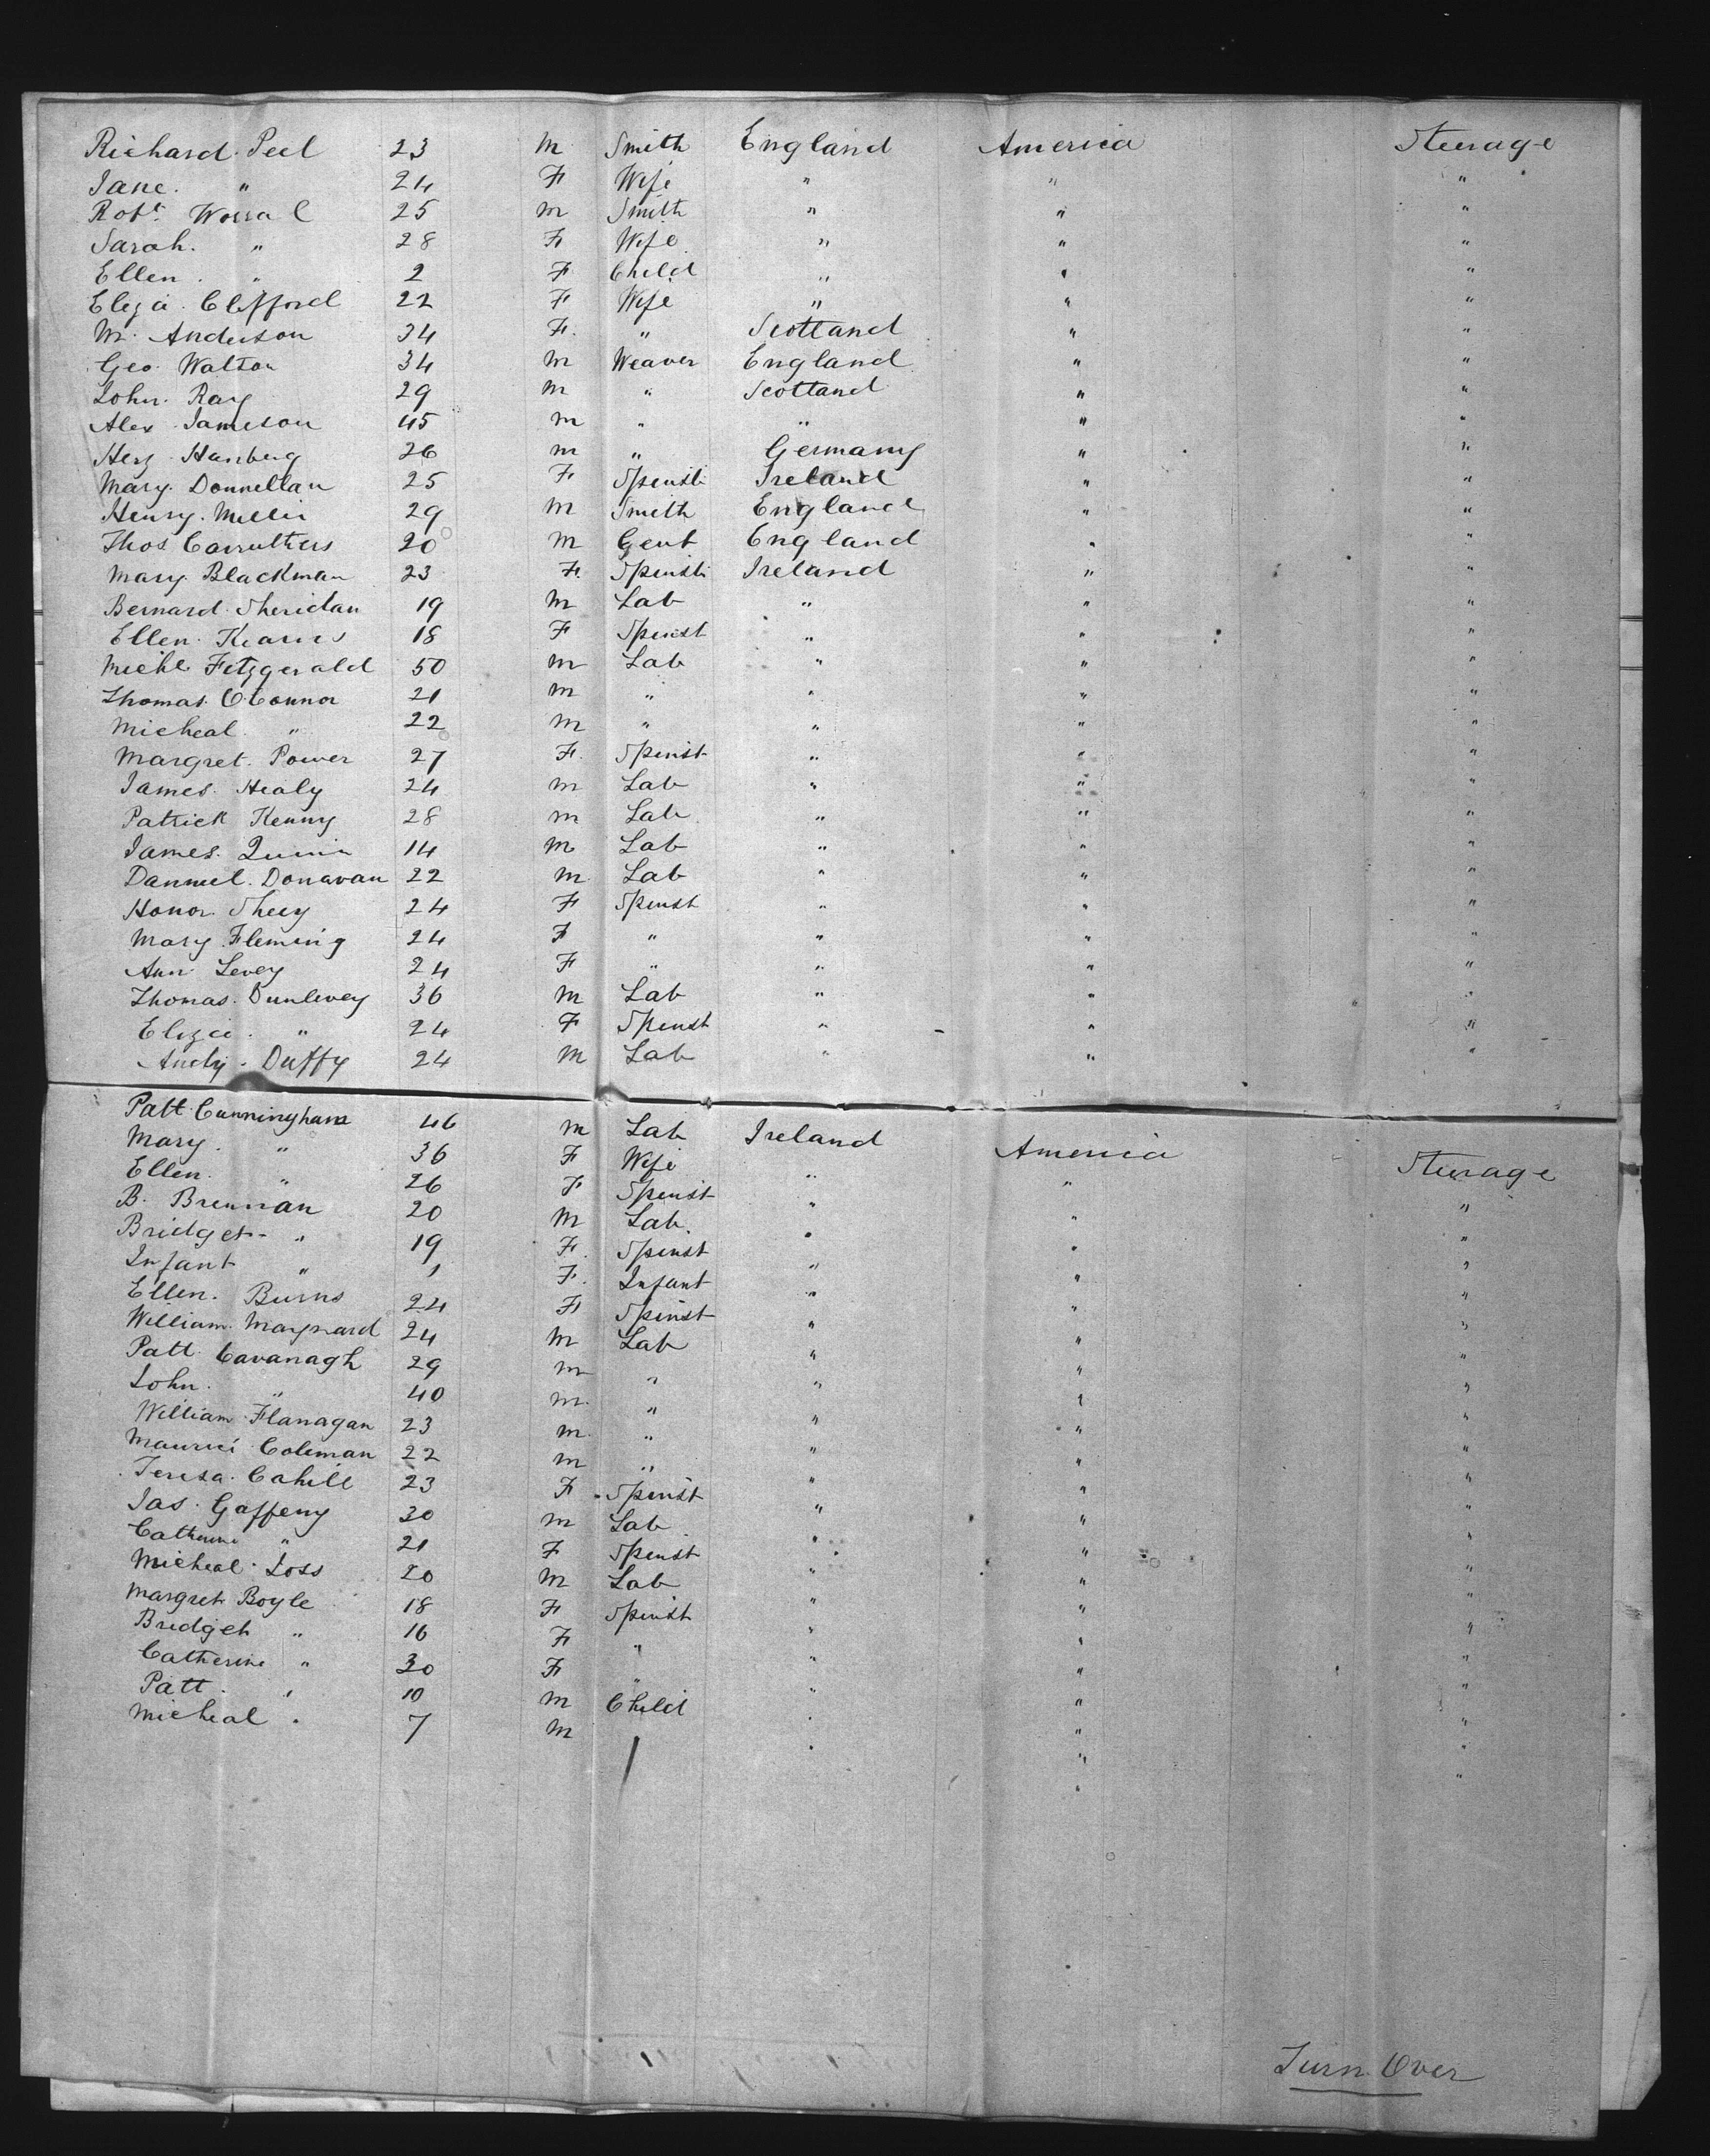 Richard Peel 23 M Smith England America Steerage
Jane " 24 F Wife " " "
Robt Worral 25 M Smith " " "
Sarah " 28 F Wife " " "
Ellen " 2 F Child " " "
Eliza Clifford 22 F Wife " " "
M. Anderson 34 F " Scotland " "
Geo Walton 34 M Weaver England " "
John Ray 29 M " Scotland " "
Alex Jameson 45 M " " " "
Hanberg 26 M " Germany " "
Mary Donnellan 25 F Spenst Ireland " "
Henry 29 M Smith England " "
Thos Carruthers 20 M Gent England " "
Mary Blackman 23 F Spenst Ireland " "
Bernard Sheridan 19 M Lab " " "
Ellen Kearns 18 F Spenst " " "
Michl Fitzgerald 50 M Lab " " "
Thomas O'Connor 21 M " " " "
Micheal " 22 M " " " "
Margret Power 27 F Spenst " " "
James Healy 24 M Lab " " "
Patrick Kenny 28 M Lab " " "
James Quinn 14 M Lab " " "
Danniel Donavan 22 M Lab " " "
Honor Sheey 24 F Spenst " " "
Mary Fleming 24 F " " " "
Ann Levey 24 F " " " "
Thomas Dunlevey 36 M Lab " " "
Eliza " 24 F Spenst " " "
Andy Duffy 24 M Lab " " "
Patt Cunningham 46 M Lab Ireland America Steerage
Mary " 36 F Wife " " "
Ellen " 26 F Spenst " " "
B. Brennan 20 M Lab " " "
Bridget " 19 F Spenst " " "
Infant " 1 F Infant " " "
Ellen Burns 24 F Spenst " " "
William Maynard 24 M Lab " " "
Patt Cavanagh 29 M " " " "
John " 40 M " " " "
William Flanagan 23 M " " " "
Maurice Coleman 22 M " " " "
Teresa Cahill 23 F Spenst " " "
Jas Gaffeny 30 M Lab " " "
Catherine " 21 F Spenst " " "
Micheal Loss 20 M Lab " " "
Margret Boyle 18 F Spenst " " "
Bridget " 16 F " " " "
Catherine " 30 F " " " "
Patt " 10 M Child " " "
Micheal " 7 M " " "
Turn Over